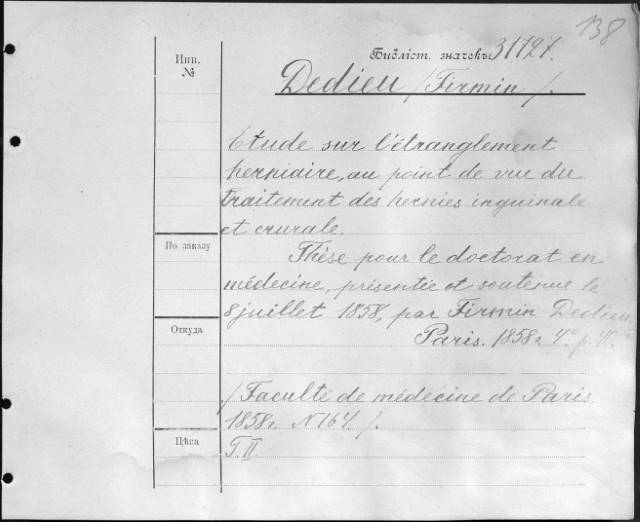 138
Инв.
№
Библіот. значекъ 31727.
Dedieu /Firmin/.
Etude sur l'étranglement
herniaire, au point de vue du
traitement des hernies inguinale
et crurale.
По заказу
Thèse pour le doctorat en
médecine, présentée et soutenue le
8 juillet 1858, par Firmin Dedieu.
Откуда
Paris. 1858г. 4° p. 40.
/Faculté de médecine de Paris.
1858г. N 164/.
Цѣна
T. II